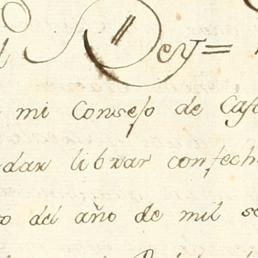 l Rey =
mi Consejo de Cas
dar librar con fech
o del año de mil se